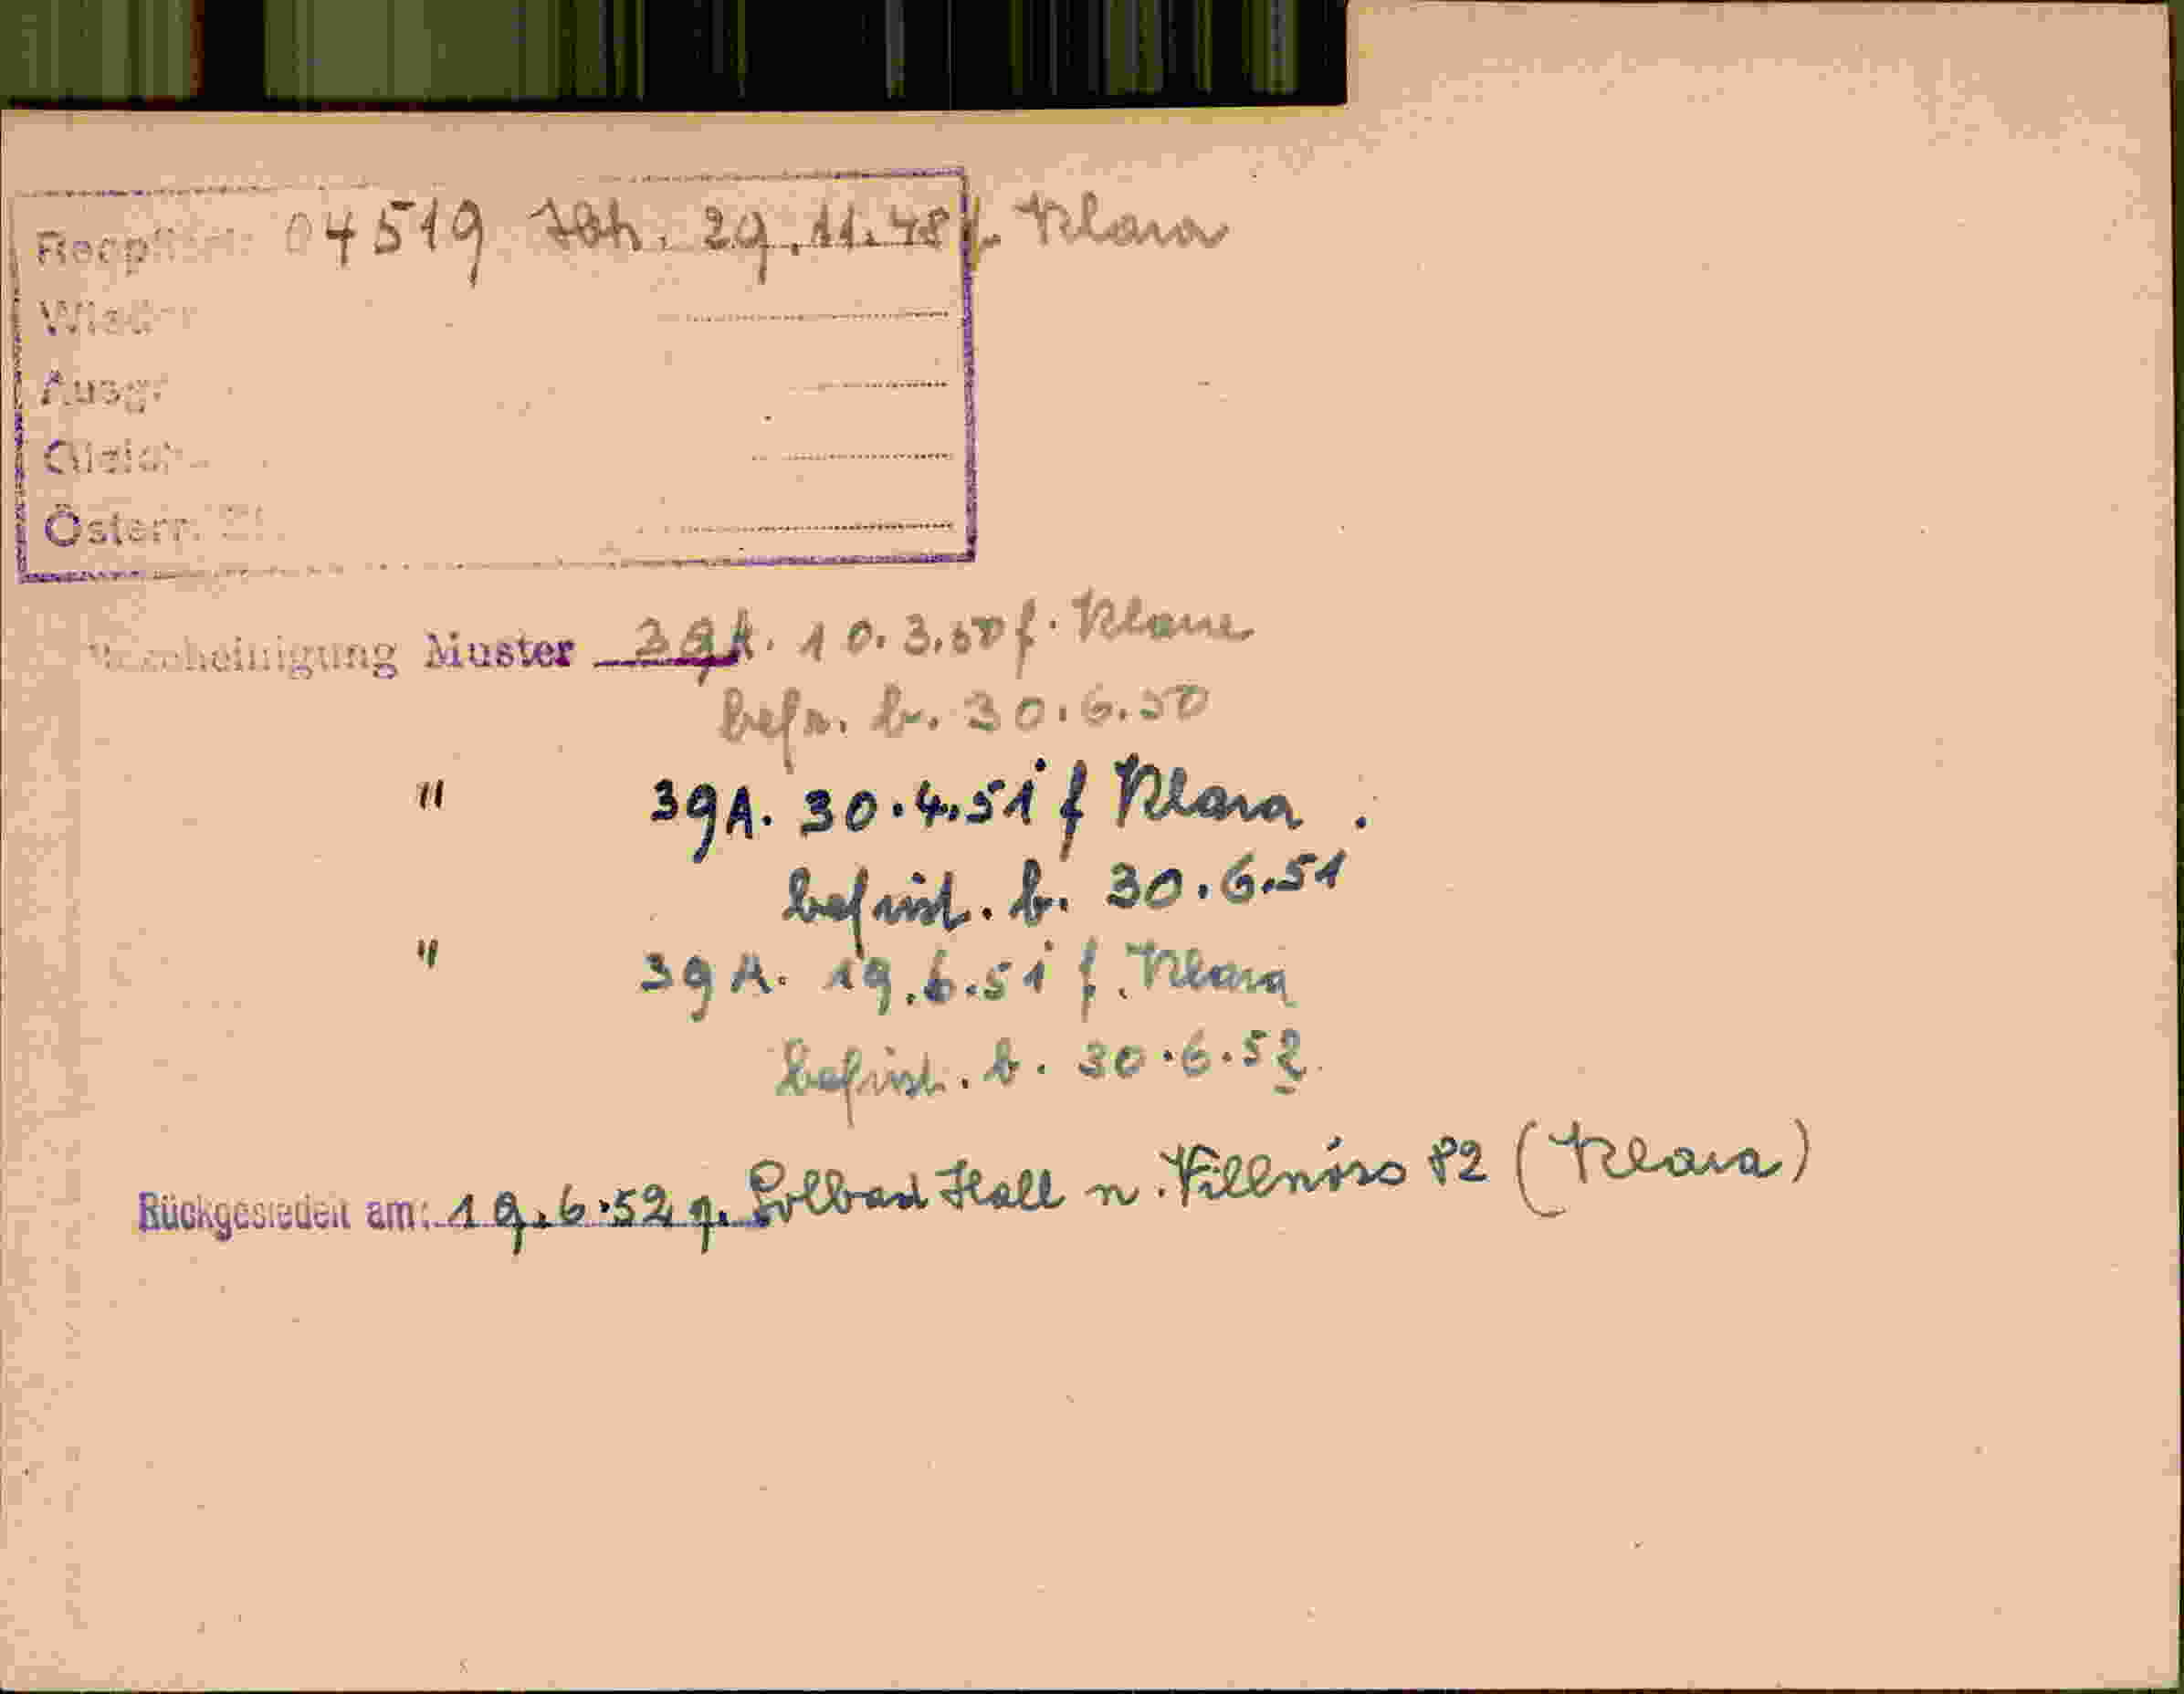 04519 Ibk. 29.11.48 f. Klara
Österr.
Bescheinigung Muster 39A. 10.3.50 f. Klara
befr. b. 30.6.50
" 39A. 30.4.51 f Klara.
befrist. b. 30.6.51
" 39A. 19.6.51 f. Klara
befrist. b. 30.6.52.
Rückgesiedelt am: 19.6.52 v. Solbad Hall n. Villnöss 82 (Klara)